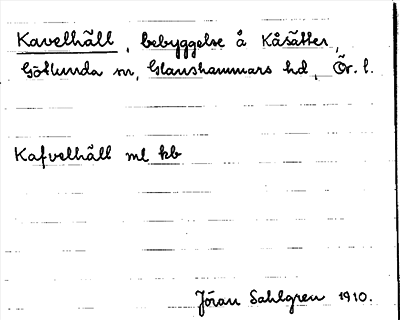 Kavelhäll, bebyggelse å Kåsätter,
Götlunda sn, Glanshammars hd, Ör. l.
Kafvelhäll ml kb
Jöran Sahlgren 1910.